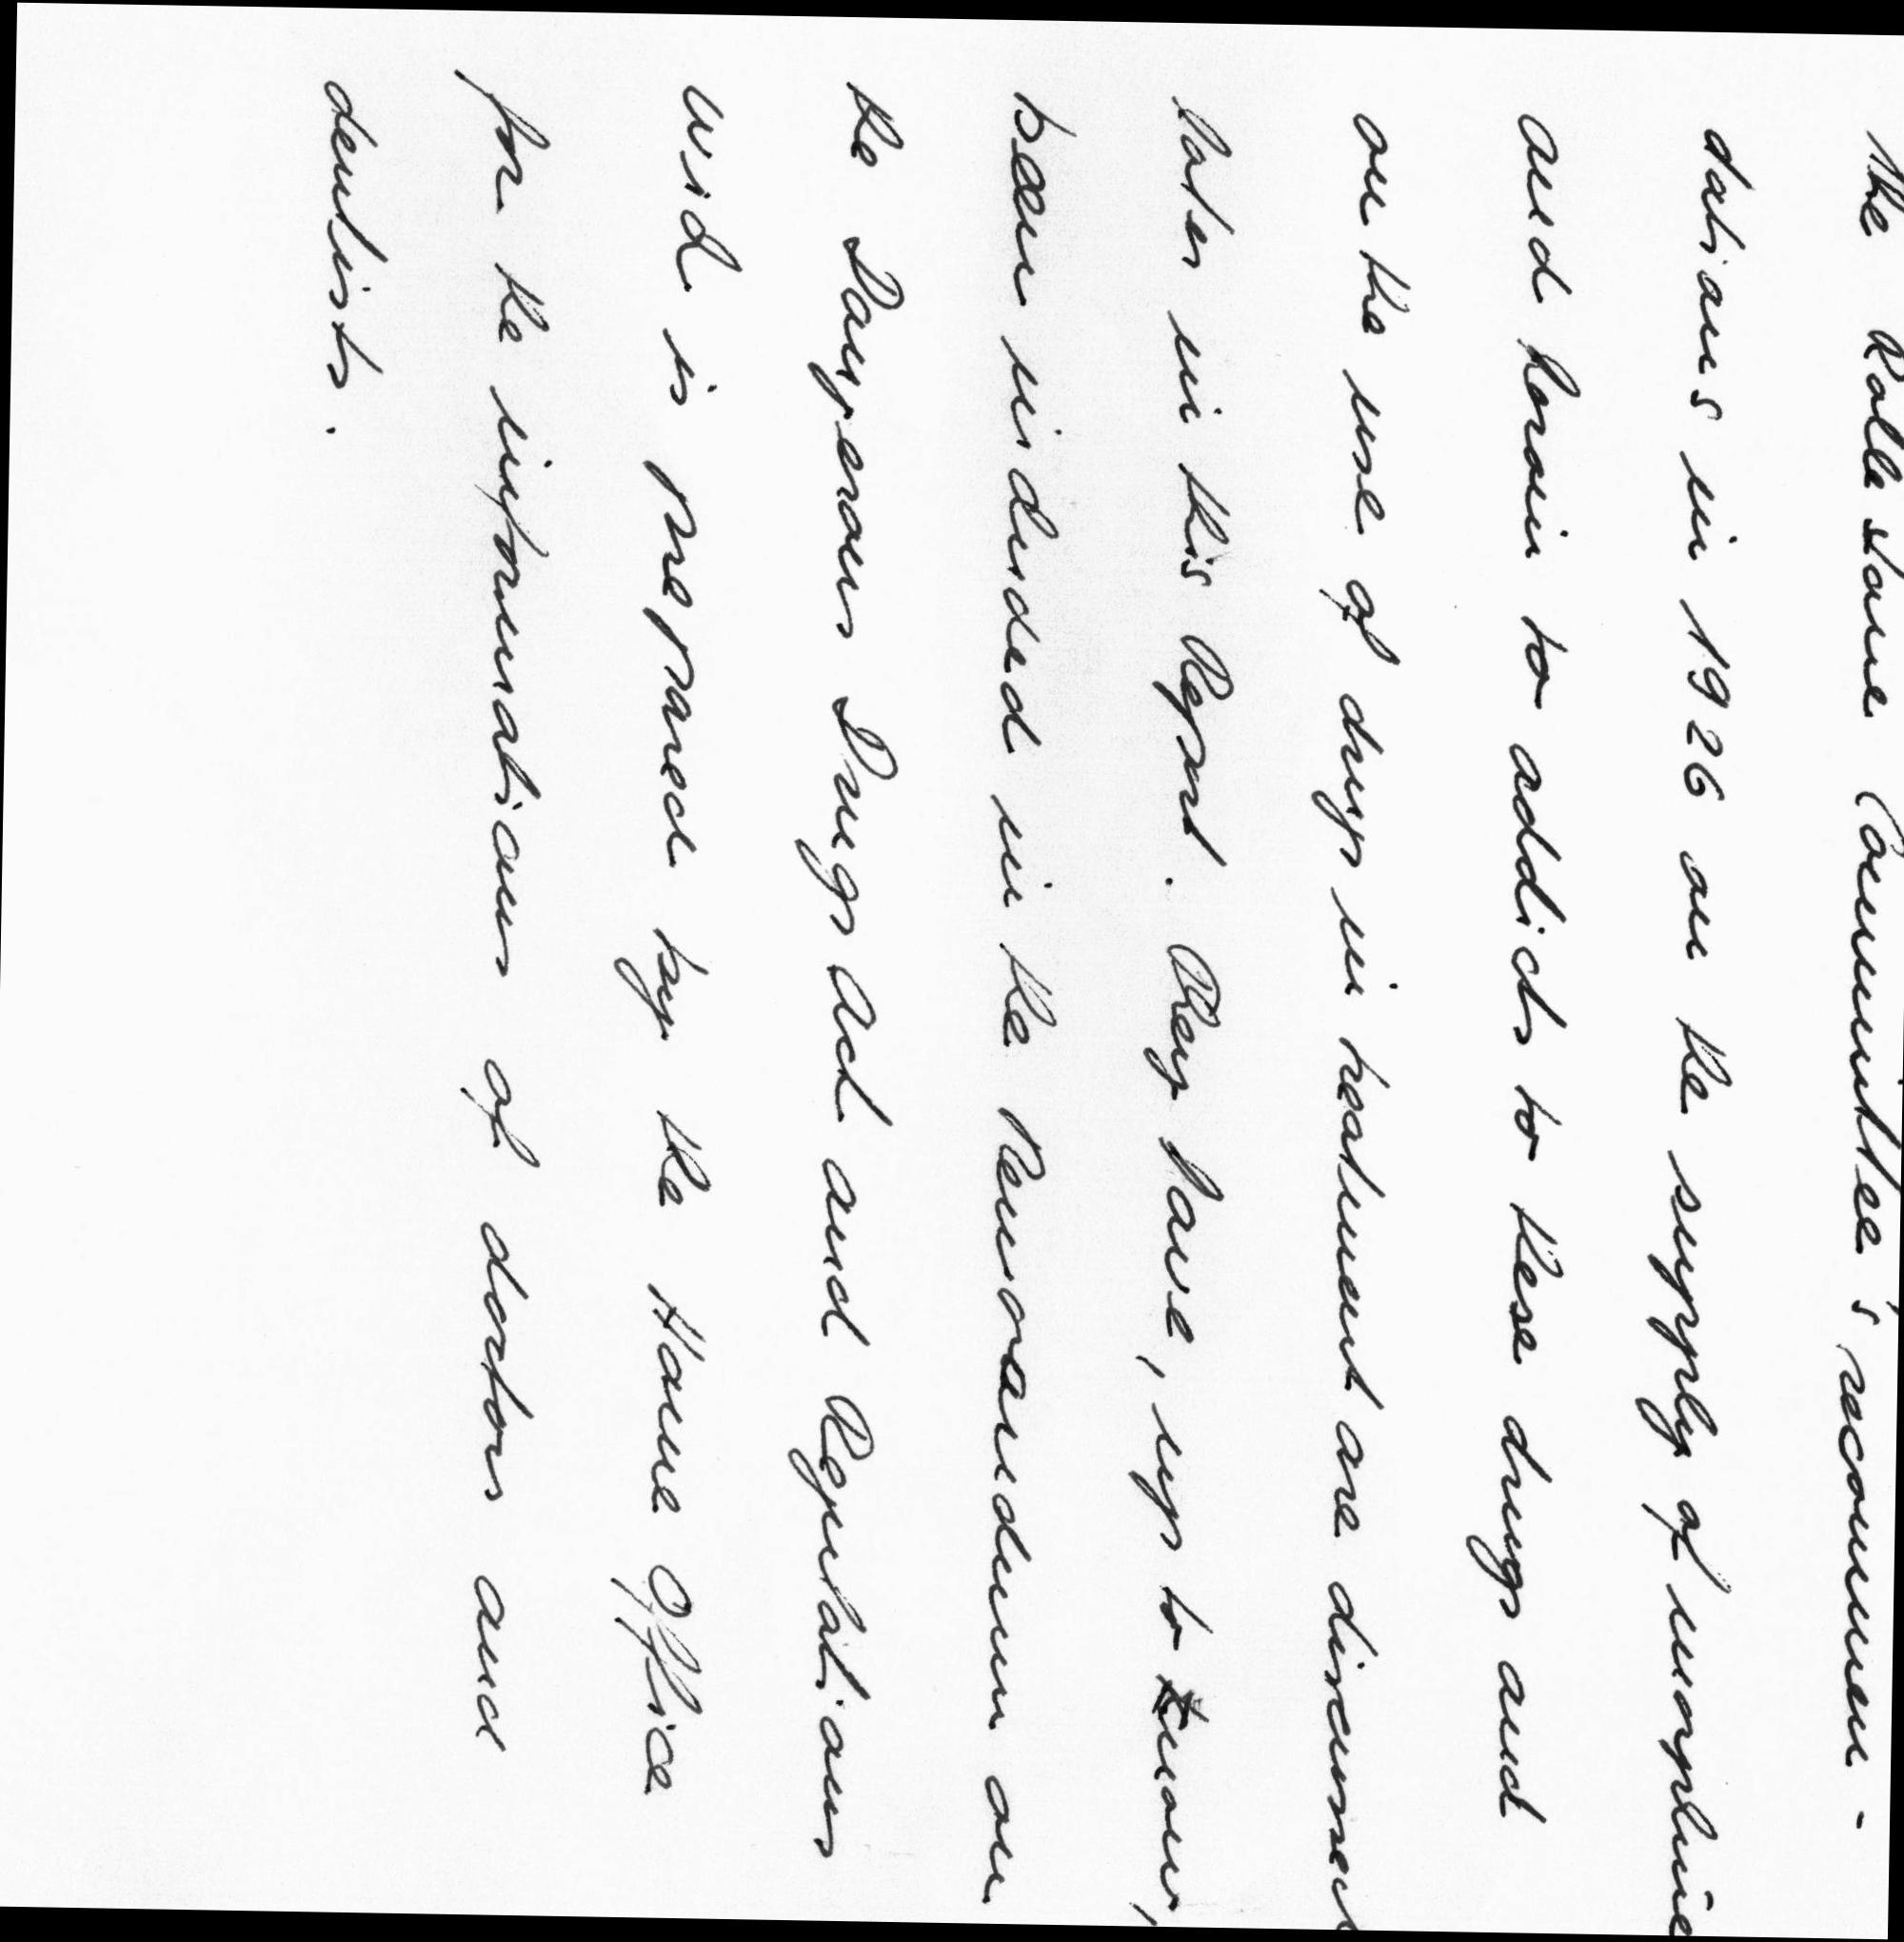 The Rollestone Committee's recommen-
dations in 1926 on the supply of morphine
and heroin to addicts to these drugs and
on the use of drugs in treatment are discussed
later in this Report. They have, up to now,
been included in the Memorandum on
the Dangerous Drugs Act and Regulations
wich is prepared by the Home Office
for the informations of doctors and
dentists.